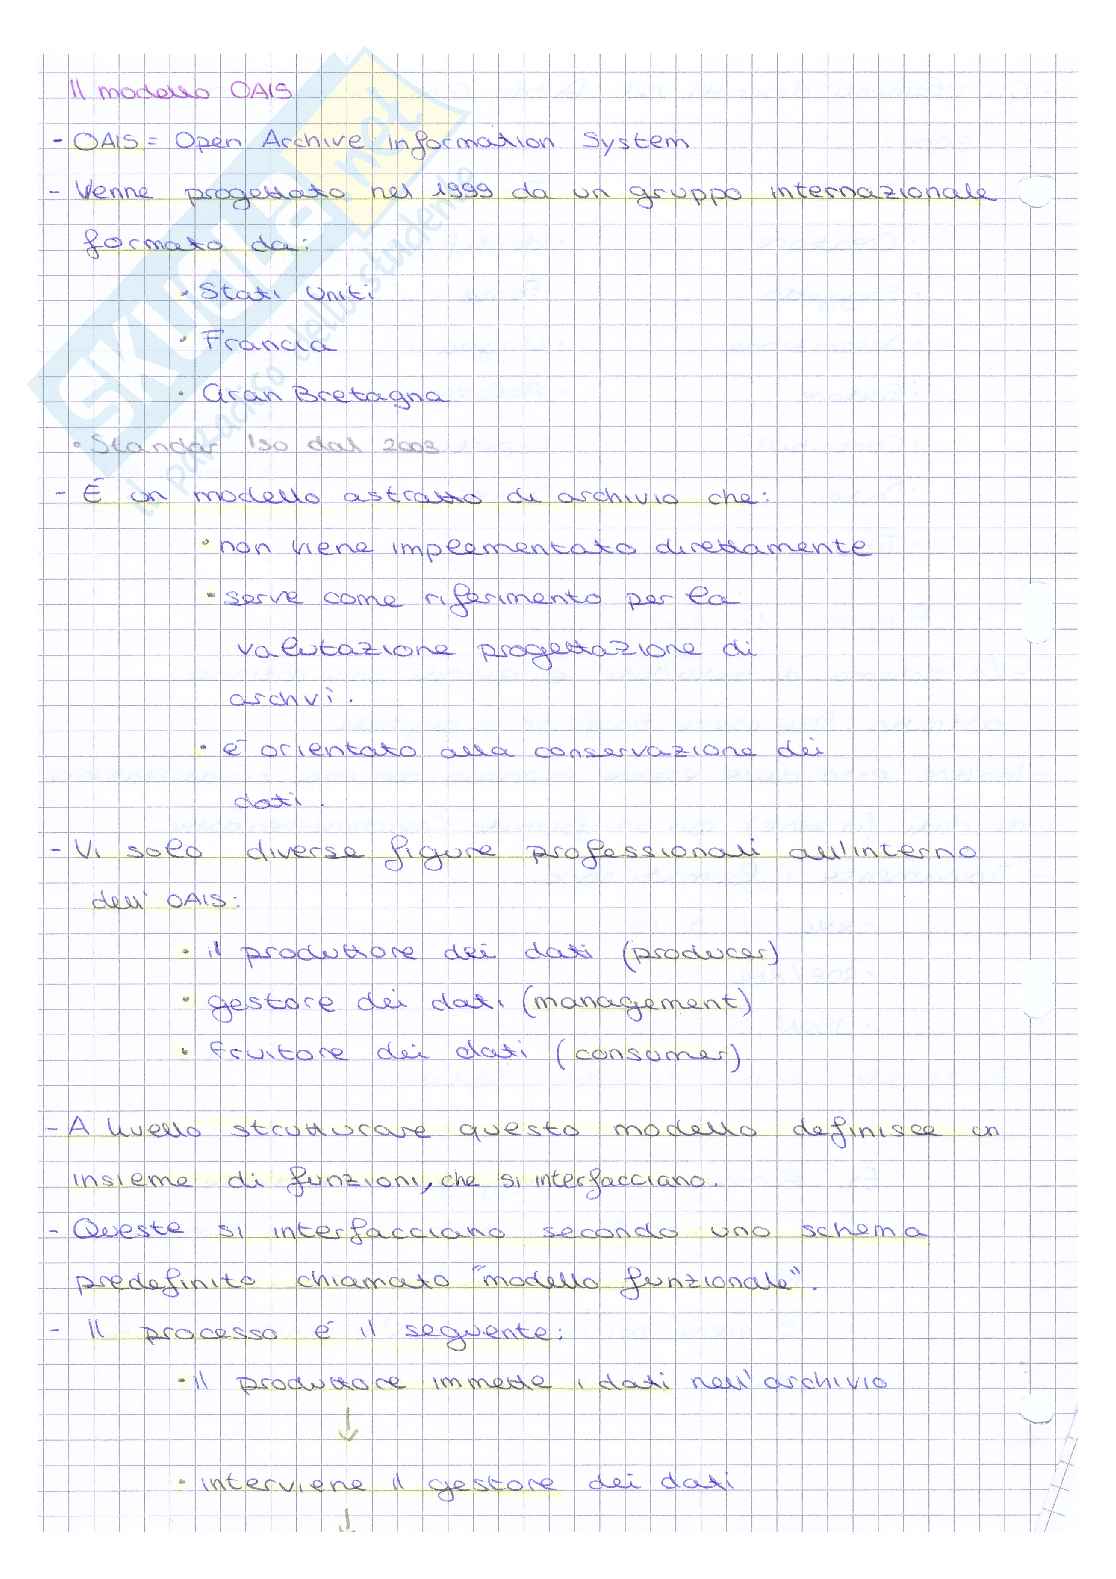 Il modello OAIS
- OAIS = Open Archive information System
- Venne progettato nel 1999 da un gruppo internazionale
formato da:
• Stati Uniti
• Francia
• Gran Bretagna
• Standar ISO dal 2003
- É un modello astratto di archivio che:
• non viene implementato direttamente
• serve come riferimento per la
valutazione progettazione di
archvi.
• é orientato alla conservazione dei
dati.
- Vi solo diverse figure professionali all'interno
dell' OAIS:
• il produttore dei dati (producer)
• gestore dei dati (management)
• fruitore dei dati (consumer)
- A livello strutturare questo modello definisce un
insieme di funzioni, che si interfacciano.
- Queste si interfacciano secondo uno schema
predefinito chiamato "modello funzionale".
- Il processo é il seguente:
• Il produttore immette i dati nell'archivio
↓
• interviene il gestore dei dati
↓
SKUOLA.net
il paradiso dello studente